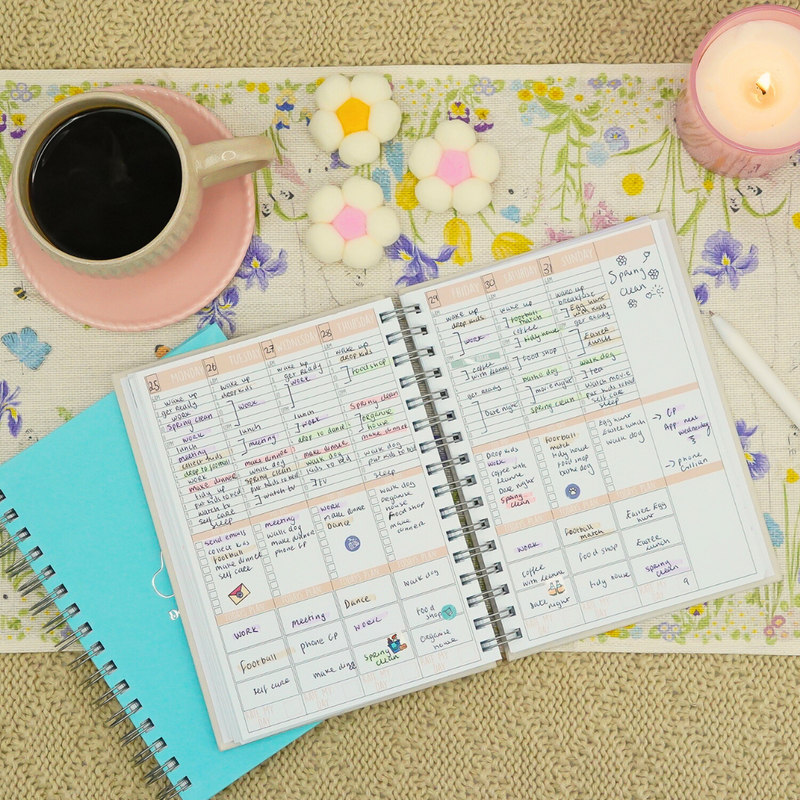 25 MONDAY
wake up
get ready
work
spring clean
lunch
work
meeting
collect kids
drop to football
work
make dinner
tidy up
put kids to bed
watch tv
self care
sleep
send emails
collect kids
football
make dinner
self care
work
Football
self care
26 TUESDAY
wake up
drop kids
work
lunch
meeting
make dinner
walk dog
spring clean
put kids to bed
watch tv
meeting
walk dog
make dinner
phone GP
meeting
phone GP
27 WEDNESDAY
wake up
get ready
work
lunch
work
drop to dance
make dinner
walk dog
kids to bed
TV
work
make dinner
Dance
Dance
work
spring
clean
28 THURSDAY
wake up
drop kids
food shop
spring clean
organise
house
make dinner
walk dog
put kids to bed
sleep
walk dog
organise
house
food shop
make
dinner
walk dog
food
shop
organise
house
29 FRIDAY
wake up
drop kids
work
coffee
with leanne
get ready
Date night
Drop kids
work
coffee with
leanne
Date night
spring
clean
work
coffee
with leanne
Date
night
30 SATURDAY
wake up
football
match
coffee
tidy house
food shop
walk dog
date night
spring clean
Football
match
tidy house
food shop
walk dog
Football
match
food shop
tidy house
31 SUNDAY
wake up
breakfast
Egg hunt
with kids
get ready
Easter
lunch
walk dog
tea
watch movie
put kids to bed
self care
sleep
Egg hunt
Easter lunch
walk dog
Easter Egg
hunt
Easter
lunch
spring
clean
Spring
clean
→ GP
App next
wednesday
→ phone
Gillian
9